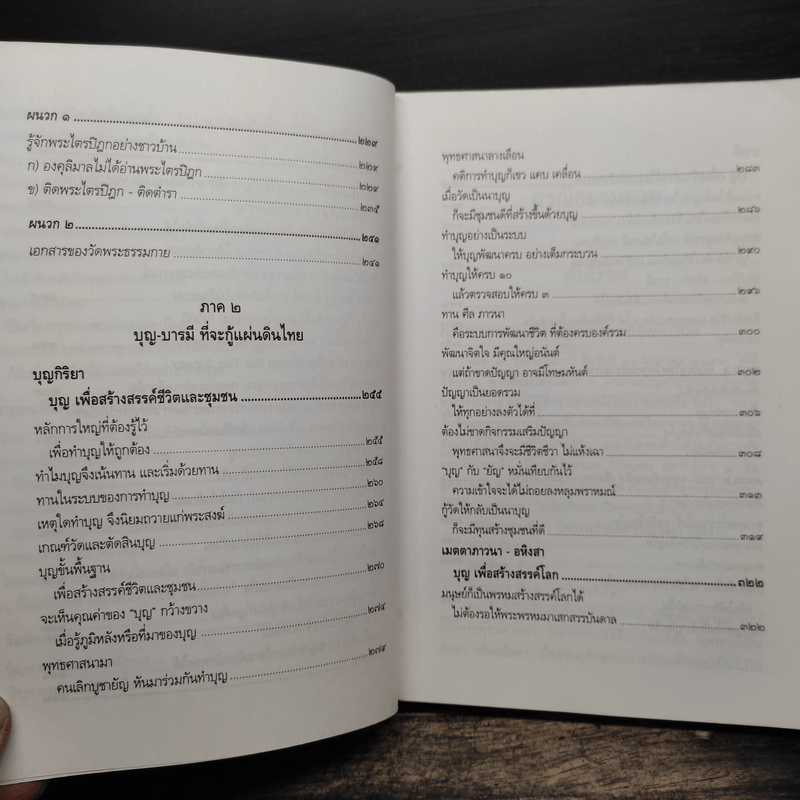 ผนวก ๑ ๒๒๙
รู้จักพระไตรปิฎกอย่างชาวบ้าน ๒๒๙
ก) องคุลิมาลไม่ได้อ่านพระไตรปิฎก ๒๒๙
ข) ติดพระไตรปิฎก - ติดตำรา ๒๓๕
ผนวก ๒ ๒๔๑
เอกสารของวัดพระธรรมกาย ๒๔๑
ภาค ๒
บุญ-บารมี ที่จะกู้แผ่นดินไทย
บุญกิริยา
บุญ เพื่อสร้างสรรค์ชีวิตและชุมชน ๒๕๕
หลักการใหญ่ที่ต้องรู้ไว้
เพื่อทำบุญให้ถูกต้อง ๒๕๕
ทำไมบุญจึงเน้นทาน และเริ่มด้วยทาน ๒๕๘
ทานในระบบของการทำบุญ ๒๖๐
เหตุใดทำบุญ จึงนิยมถวายแก่พระสงฆ์ ๒๖๔
เกณฑ์วัดและตัดสินบุญ ๒๖๘
บุญขั้นพื้นฐาน
เพื่อสร้างสรรค์ชีวิตและชุมชน ๒๗๐
จะเห็นคุณค่าของ "บุญ" กว้างขวาง
เมื่อรู้ภูมิหลังหรือที่มาของบุญ ๒๗๔
พุทธศาสนามา
คนเลิกบูชายัญ หันมาร่วมกันทำบุญ ๒๗๙
พุทธศาสนาลางเลือน
คติการทำบุญก็เขว แคบ เคลื่อน ๒๘๓
เมื่อวัดเป็นนาบุญ
ก็จะมีชุมชนดีที่สร้างขึ้นด้วยบุญ ๒๘๖
ทำบุญอย่างเป็นระบบ
ให้บุญพัฒนาครบ อย่างเต็มกระบวน ๒๙๐
ทำบุญให้ครบ ๑๐
แล้วตรวจสอบให้ครบ ๓ ๒๙๖
ทาน ศีล ภาวนา
คือระบบการพัฒนาชีวิต ที่ต้องครบองค์รวม ๓๐๐
พัฒนาจิตใจ มีคุณใหญ่อนันต์
แต่ถ้าขาดปัญญา อาจมีโทษมหันต์ ๓๐๒
ปัญญาเป็นยอดรวม
ให้ทุกอย่างลงตัวได้ที่ ๓๐๖
ต้องไม่ขาดกิจกรรมเสริมปัญญา
พุทธศาสนาจึงจะมีชีวิตชีวา ไม่แห้งเฉา ๓๐๘
"บุญ" กับ "ยัญ" หมั่นเทียบกันไว้
ความเข้าใจจะได้ไม่ถอยลงหลุมพราหมณ์ ๓๑๓
กู้วัดให้กลับเป็นนาบุญ
ก็จะมีทุนสร้างชุมชนที่ดี ๓๑๙
เมตตาภาวนา - อหิงสา
บุญ เพื่อสร้างสรรค์โลก ๓๒๒
มนุษย์ก็เป็นพรหมสร้างสรรค์โลกได้
ไม่ต้องรอให้พระพรหมมาเสกสรรบันดาล ๓๒๒